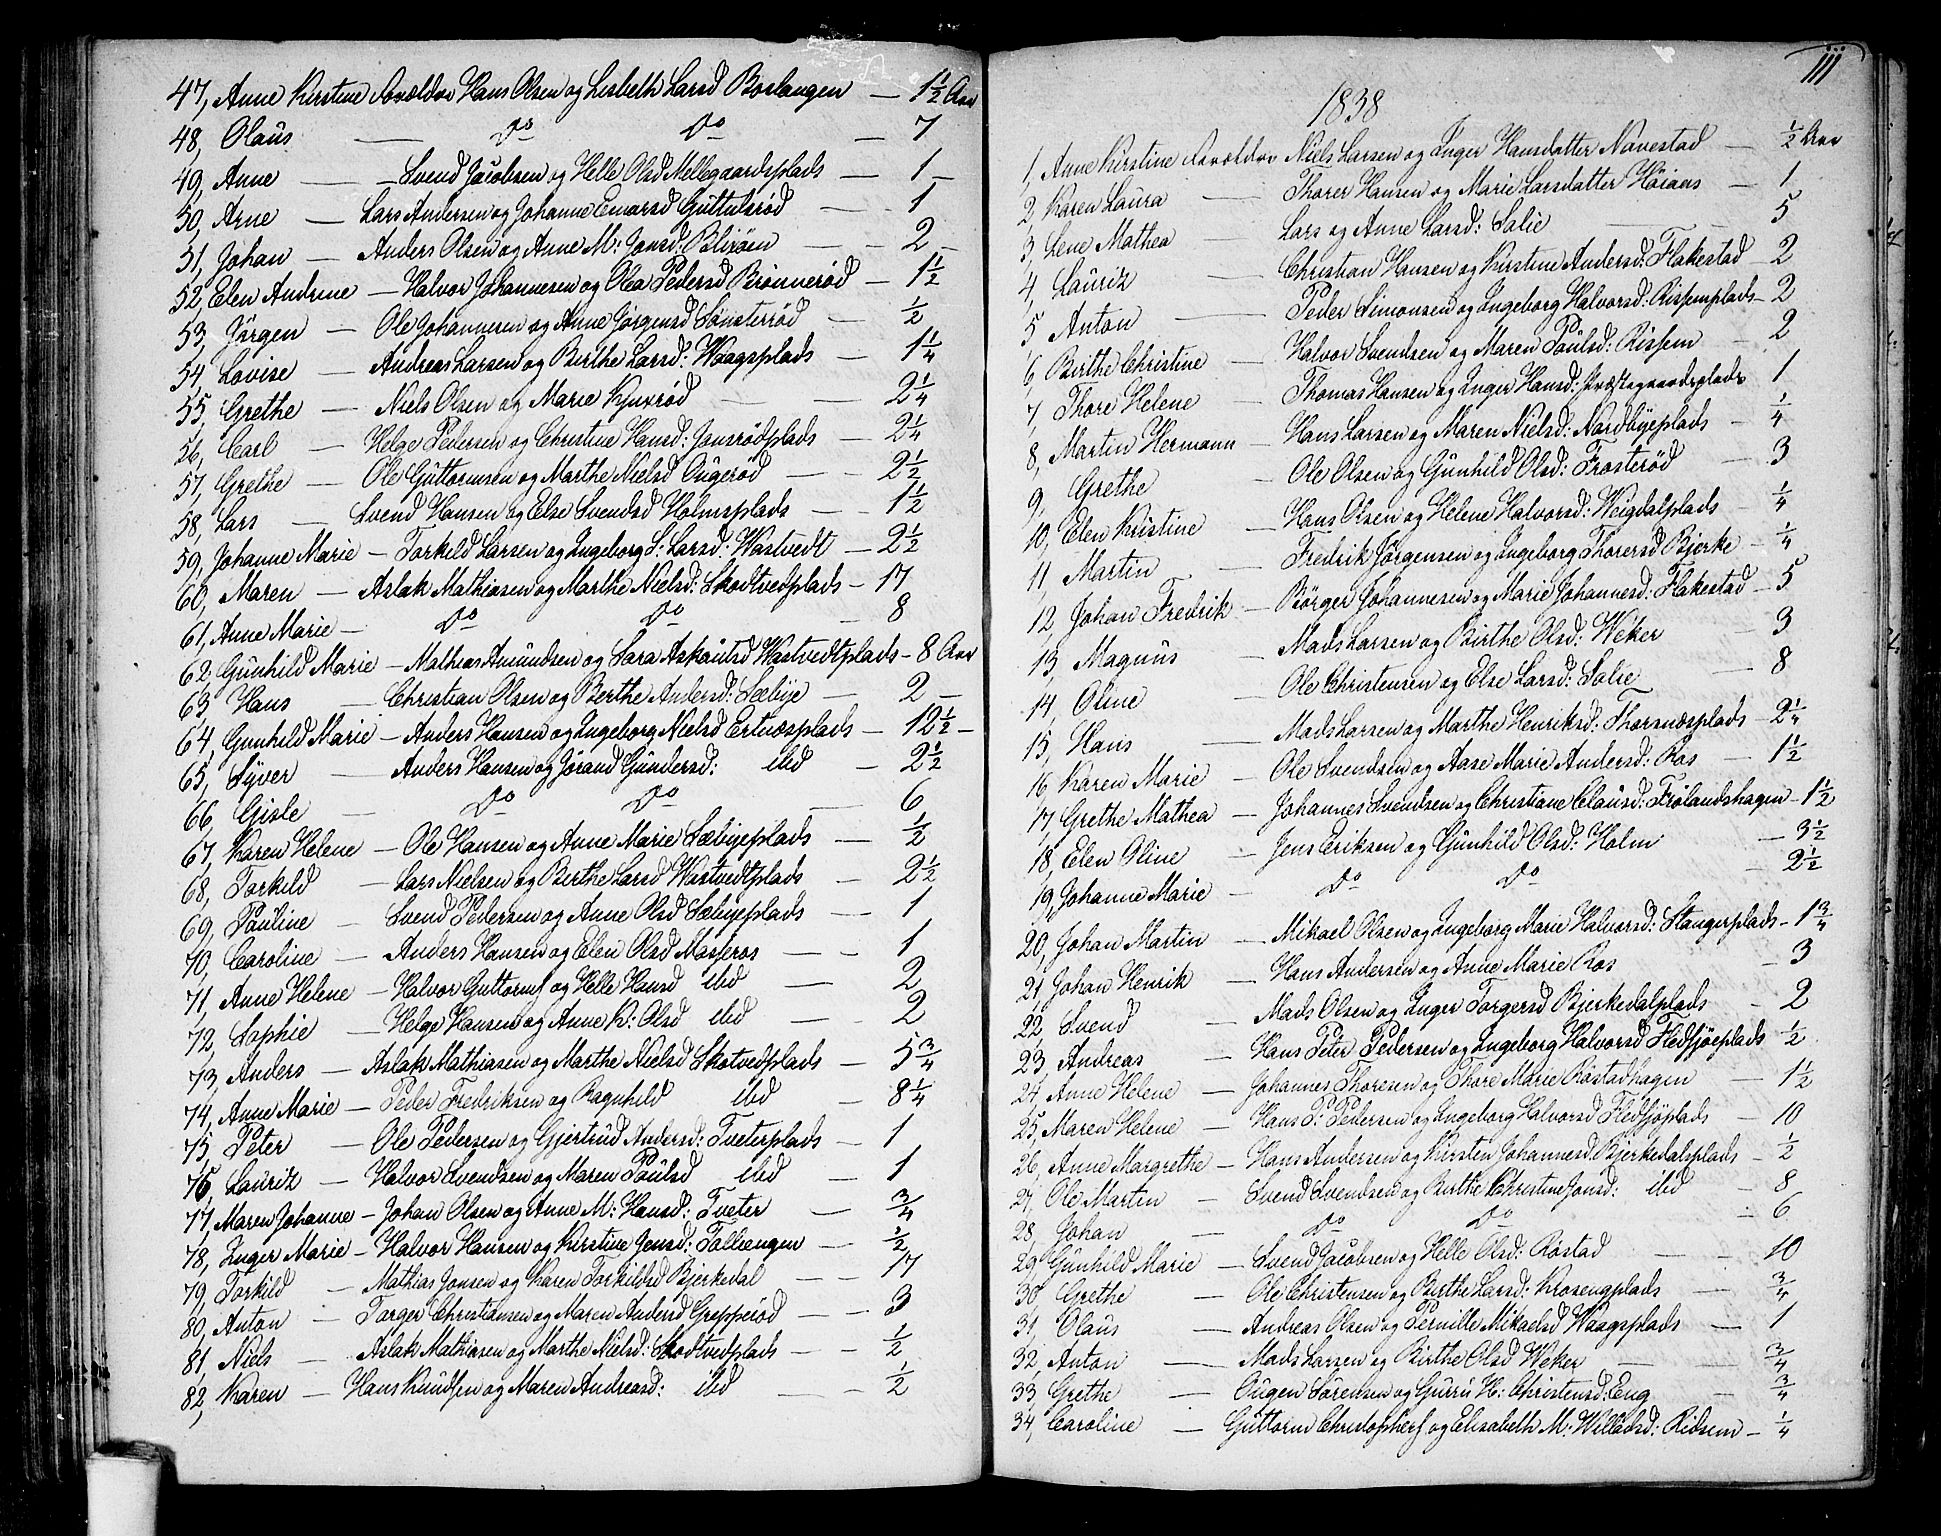 47, Anne Kirstine Forældre Hans Olsen og Lisbeth Larsd Boslangen — 1½ Aar
48, Olaus — Do Do — 7
49, Anne — Svend Jacobsen og Helle Olsd Mellegaardsplads — 1 —
50, Arne — Lars Andersen og Johanne Enarsd Guttulsrød — 1
51, Johan — Anders Olsen og Anne M: Jonsd: Blixøen — 2 —
52, Elen Andrine — Halvor Johannesen og Olea Pedersd Brønnerød — 1½
53, Jörgen — Ole Johannesen og Anne Jörgensd Sønsterrød — ½
54, Lovise — Andreas Larsen og Birthe Larsd: Waagsplads — 1¼
55, Grethe — Niels Olsen og Marie Kjuxrød — 2¼
56, Carl — Helge Pedersen og Christine Hansd: Jonsrødplads — 2¼
57, Grethe — Ole Guttormsen og Marthe Nielsd Ougerød — 2½
58, Lars — Svend Hansen og Else Svendsd Holmsplads — 1½
59, Johanne Marie — Torkild Larsen og Ingeborg S: Larsd: Wastvedt — 2½
60, Maren — Aslak Mathiasen og Marthe Nielsd: Skodtvedplads — 17
61, Anne Marie — Do Do — 8
62 Gunhild Marie — Mathias Amundsen og Sara Askautsd Wastvedtplads — 8 Aar
63, Hans — Christian Olsen og Berthe Andersd: Sæbye — 2 —
64, Gunhild Marie — Anders Hansen og Ingeborg Nielsd Ertnæsplads — 12½ —
65, Syver — Anders Hansen og Jörand Gundersd: ibid — 2½
66, Gisle — Do Do — 6
67, Karen Helene — Ole Hansen og Anne Marie Sæbyeplads — ½
68, Torkild — Lars Nielsen og Berthe Larsd Wastvedtplads — 2½
69, Pauline — Svend Pedersen og Anne Olsd Sæbyeplads — 1
70, Caroline — Anders Hansen og Elen Olsd Masferos — 1
71, Anne Helene — Halvor Guttormsf og Helle Hansd ibid — 2
72, Sophie — Helge Hansen og Anne K: Olsd ibid — 2
73, Anders — Aslak Mathiasen og Marthe Nielsd Skotvedplads — 5¾
74, Anne Marie — Peder Fredriksen og Ragnhild ibid — 8¼
75, Peter — Ole Pedersen og Gjertrud Andersd: Tveterplads — 1
76, Lauritz — Halvor Svendsen og Maren Poulsd ibid — 1
77, Maren Johanne — Johan Olsen og Anne M: Hansd: Tveter — ¾
78, Inger Marie — Halvor Hansen og Kirstine Jensd: Tollængen — ½
79, Torkild — Mathias Jonsen og Karen Torkildsd Bjerkedal — 17
80, Anton — Torger Christiansen og Maren Andersd Grepperød — 3
81, Niels — Aslak Mathiasen og Marthe Nielsd: Skodtvedplads — ½
82, Karen — Hans Knudsen og Maren Andreasd: ibid — ½
111
1838
1, Anne Kirstine Forældre Niels Larsen og Inger Hansdatter Navestad — ½ Aar
2, Karen Laura — Thorer Hansen og Marie Larsdatter Höiaas — 1
3, Lene Mathea — Lars og Anne Larsd: Solie — 5
4, Lauritz — Christian Hansen og Kirstine Andersd: Flakestad — 2
5 Anton — Peder Simonsen og Ingeborg Halvorsd: Rissemplads — 2
6, Birthe Christine — Halvor Svendsen og Maren Poulsd: Rissem — 2
7, Thore Helene — Thomas Hansen og Inger Hansd: Præstegaardsplads 1
8, Martin Hermann — Hans Larsen og Maren Nielsd: Nordbyeplads — ¼
9, Grethe — Ole Olsen og Gunhild Olsd: Frosterød — 3
10, Elen Kristine — Hans Olsen og Helene Halvorsd: Weigdalplads — ¼
11, Martin — Fredrik Jörgensen og Ingeborg Thorersd Bjerke — ¼
12 Johan Fredrik — Börger Johannesen og Marie Johannesd: Flakestad — 5
13, Magnus — Mads Larsen og Birthe Olsd: Weker — 3
14, Oline — Ole Christensen og Else Larsd: Solie — 8
15, Hans — Mads Larsen og Marthe Henriksd: Thorsnæsplads — 2¼
16 Karen Marie — Ole Svendsen og Aase Marie Andersd: Ros — 1½
17, Grethe Mathea — Johannes Svendsen og Christiane Clausd: Frölandshagen — 1½
18, Elen Oline — Jens Eriksen og Gunhild Olsd: Holm — 3½
19, Johanne Marie — Do Do — 2½
20, Johan Martin — Mikael Olsen og Ingeborg Marie Halvorsd: Stangerplads — 1¾
21, Johan Henrik — Hans Andersen og Anne Marie Ros — 3
22, Svend — Mads Olsen og Inger Torgersd Bjerkedalplads — 2
23, Andreas — Hans Peter Pedersen og Ingeborg Halvorsd Fledsjöeplads — ½
24, Anne Helene — Johannes Thoresen og Thore Marie Röstadhagen — 1½
25, Maren Helene — Hans P: Pedersen og Ingeborg Halvorsd Fledsjöplads — 10
26, Anne Margrethe — Hans Andersen og Kirsten Johannesd Bjerkedalsplads — ½
27, Ole Martin — Svend Svendsen og Birthe Christine Jonsd: ibid — 8
28, Johan — Do Do — 6
29, Gunhild Marie — Svend Jacobsen og Helle Olsd: Röstad — 10
30, Grethe — Ole Christensen og Birthe Larsd: Krosengplads — ¾
31, Olaus — Andreas Olsen og Pernille Mikaelsd Waagsplads — 1
32, Anton — Mads Larsen og Birthe Olsd Weker — ¾
33, Grethe — Ougen Sörensen og Gurru H: Christensd: Eng — ¾
34, Caroline — Guttorm Christophersf og Elisabeth M: Willadsd: Ridsem — ¼